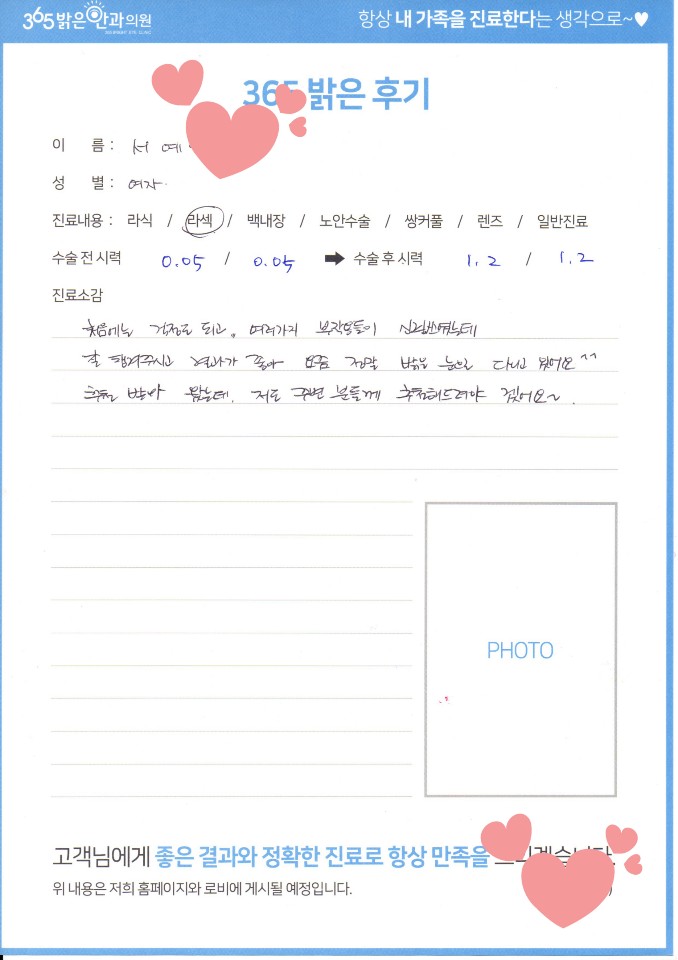 365 밝은안과의원
항상 내 가족을 진료한다는 생각으로~♥
365 밝은 후기
이 름 : 서 예
성 별 : 여자
진료내용 : 라식 / 라섹 / 백내장 / 노안수술 / 쌍커풀 / 렌즈 / 일반진료
수술 전 시력 0.05 / 0.05 ➡ 수술 후 시력 1.2 / 1.2
진료소감
처음에는 걱정도 되고, 여러가지 부작용들이 신경쓰였는데
잘 챙겨주시고 결과가 좋아 요즘 정말 밝은 눈으로 다니고 있어요^^
추천 받아 왔는데, 저도 주변 분들께 추천해드려야 겠어요~
PHOTO
고객님에게 좋은 결과와 정확한 진료로 항상 만족을
위 내용은 저희 홈페이지와 로비에 게시될 예정입니다.